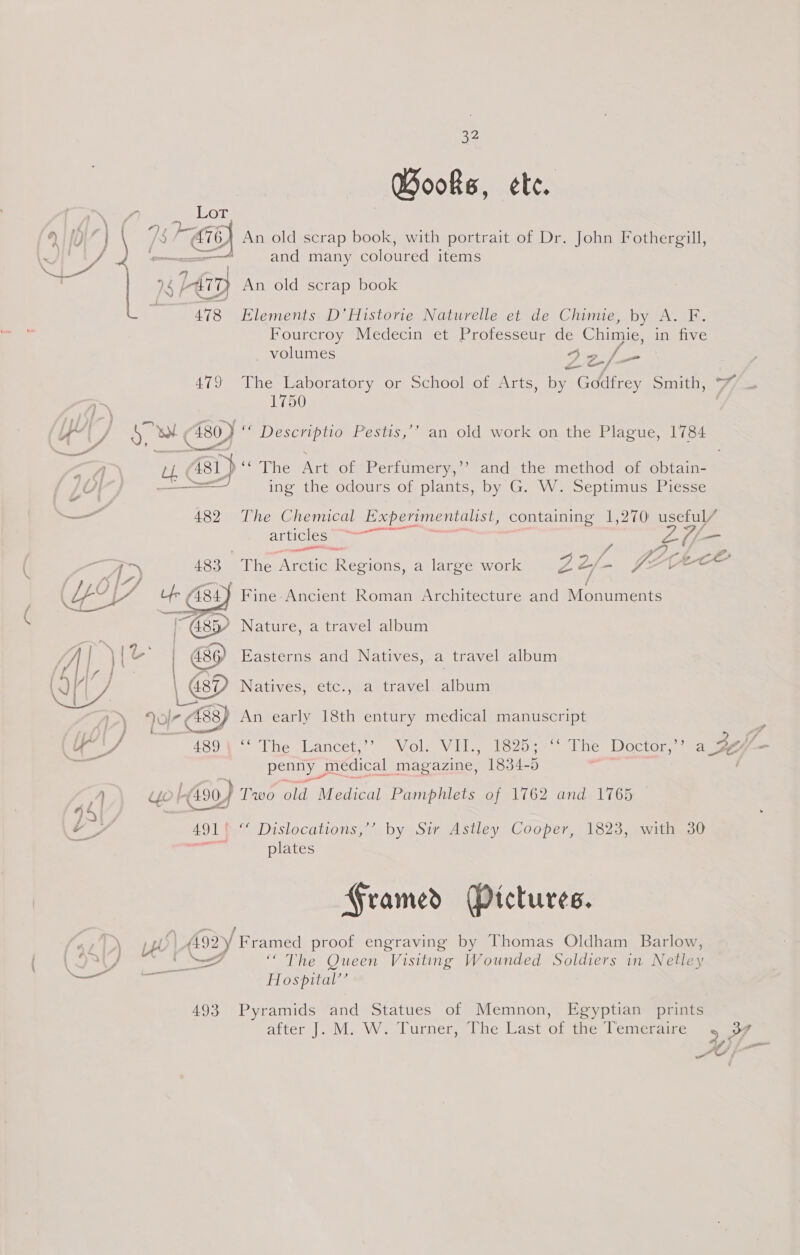 32
Books, etc.
Lot
476 An old scrap book, with portrait of Dr. John Fothergill,
and many coloured items
477 An old scrap book
478 Elements D'Historie Naturelle et de Chimie, by A. F.
Fourcroy Medecin et Professeur de Chimie, in five
volumes 22/-
479 The Laboratory or School of Arts, by Godfrey Smith,
1750
480 “ Descriptio Pestis,” an old work on the Plague, 1784
481 “ The Art of Perfumery,” and the method of obtain-
ing the odours of plants, by G. W. Septimus Piesse
482 The Chemical Experimentalist, containing 1,270 useful
articles
483 The Arctic Regions, a large work 22/-
484 Fine Ancient Roman Architecture and Monuments
485 Nature, a travel album
486 Easterns and Natives, a travel album
487 Natives, etc., a travel album
488 An early 18th entury medical manuscript
489 “ The Lancet,” Vol. VII., 1825; “ The Doctor,” a
penny medical magazine, 1834-5
490 Two old Medical Pamphlets of 1762 and 1765
491 “ Dislocations,” by Sir Astley Cooper, 1823, with 30
plates
Framed Pictures.
492 Framed proof engraving by Thomas Oldham Barlow,
“ The Queen Visiting Wounded Soldiers in Netley
Hospital”
493 Pyramids and Statues of Memnon, Egyptian prints
after J. M. W. Turner, The Last of the Temeraire